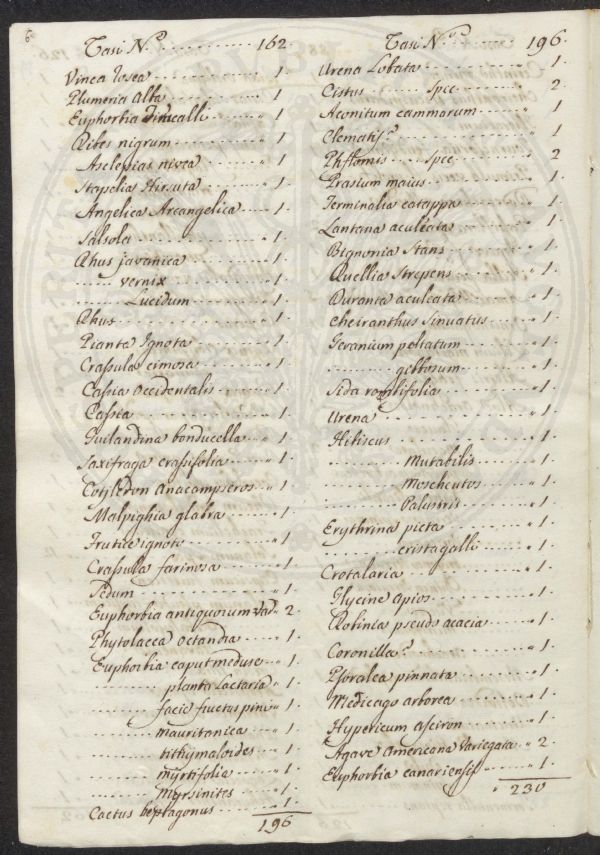 6.
Tasi N.º 162.
Vinca rosea 1.
Plumeria Alba 1
Euphorbia Tirucalli 1
Ribes nigrum 1
Asclepias nivea 1
Stapelias Hirsuta 1.
Angelica Arcangelica 1.
Salsola 1.
Rhus javanica 1.
vernix 1.
Lucidum 1.
Rhus 1.
Pianta Ignota 1.
Craſsula cimosa 1.
Caſsia occidentalis 1.
Caſsia 1.
Guilandina bonducella 1.
Saxifraga craſsifolia 1.
Cotyledon Anacampseros 1.
Malpighia glabra 1.
Frutice ignoto 1.
Craſsula farinosa 1.
Sedum 1.
Euphorbia antiquorum Va 2.
Phytolacca octandia 1.
Euphorbia caput meduse 1.
planta Lactaria 1.
facie fructus pini 1.
mauritanica 1.
tithymaloides 1.
myrtifolia 1.
Myrsinites 1.
Cactus heptagonus 1.
196
Tasi N.º 196.
Urena Lobata 1.
Cistus Spec. 2.
Aconitum cammarum 1.
Clematis? 1
Phflomis Spec. 2
Prasium maius 1.
Terminalia catappa 1.
Lantana aculeata 1.
Bignonia Stans 1.
Ruellia Strepens 1.
Duranta aculeata 1.
Cheiranthus Sinuatus 1.
Geranium peltatum 1.
gibbosum 1.
Sida rombifolia 1.
Urena 1.
Hibiscus 1.
Mutabilis 1.
Moscheutos 1.
Palustris 1.
Erythrina picta 1.
cristagalli 1.
Crotalaria 1.
Glycine apios 1.
Robinia pseudo acacia 1.
Coronilla? 1.
Pſoralea pinnata 1.
Medicago arborea 1.
Hypericum asciron 1.
Agave Americana Variegata 2.
Euphorbia canariensis 1.
230